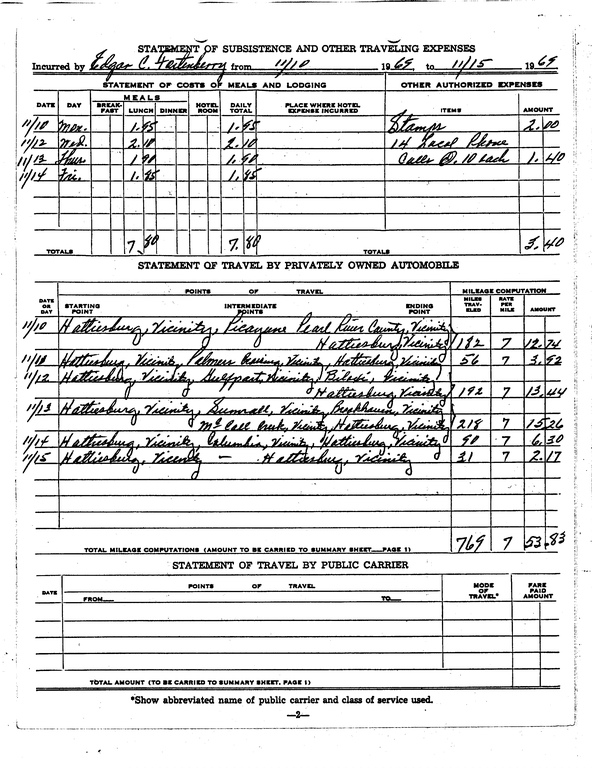 STATEMENT OF SUBSISTENCE AND OTHER TRAVELING EXPENSES
Incurred by Edgar C. Fortenberry from 11/10 1969 to 11/15 1969
STATEMENT OF COSTS OF MEALS AND LODGING OTHER AUTHORIZED EXPENSES
MEALS
DATE DAY BREAK-FAST LUNCH DINNER HOTEL ROOM DAILY TOTAL PLACE WHERE HOTEL EXPENSE INCURRED ITEMS AMOUNT
11/10 Mon. 1.95 1.95 Stamps 2.00
11/12 Wed. 2.10 2.10 14 Local Phone
11/13 Thur 1 90 1.90 Calls @ .10 each 1.40
11/14 Fri. 1.85 1.85
TOTALS 7.80 7.80 TOTALS 3.40
STATEMENT OF TRAVEL BY PRIVATELY OWNED AUTOMOBILE
POINTS OF TRAVEL MILEAGE COMPUTATION
DATE OR DAY STARTING POINT INTERMEDIATE POINTS ENDING POINT MILES TRAV-ELED RATE PER MILE AMOUNT
11/10 Hattiesburg, Vicinity, Picayune Pearl River County, Vicinity
Hattiesburg, Vicinity 182 7 12.74
11/10 Hattiesburg, Vicinity, Palmers Crossing, Vicinity, Hattiesburg, Vicinity 56 7 3.92
11/12 Hattiesburg, Vicinity Gulfport, Vicinity, Biloxi, Vicinity,
Hattiesburg Vicinity 192 7 13.44
11/13 Hattiesburg, Vicinity, Sumrall, Vicinity, Brookhaven, Vicinity
McCall Creek, Vicinity, Hattiesburg, Vicinity 218 7 15.26
11/14 Hattiesburg, Vicinity, Columbia, Vicinity, Hattiesburg, Vicinity 90 7 6.30
11/15 Hattiesburg, Vicinity — Hattiesburg, Vicinity 31 7 2.17
TOTAL MILEAGE COMPUTATIONS (AMOUNT TO BE CARRIED TO SUMMARY SHEET—PAGE 1) 769 7 53.83
STATEMENT OF TRAVEL BY PUBLIC CARRIER
DATE POINTS OF TRAVEL MODE OF TRAVEL* FARE PAID AMOUNT
FROM— TO—
TOTAL AMOUNT (TO BE CARRIED TO SUMMARY SHEET, PAGE 1)
*Show abbreviated name of public carrier and class of service used.
—2—